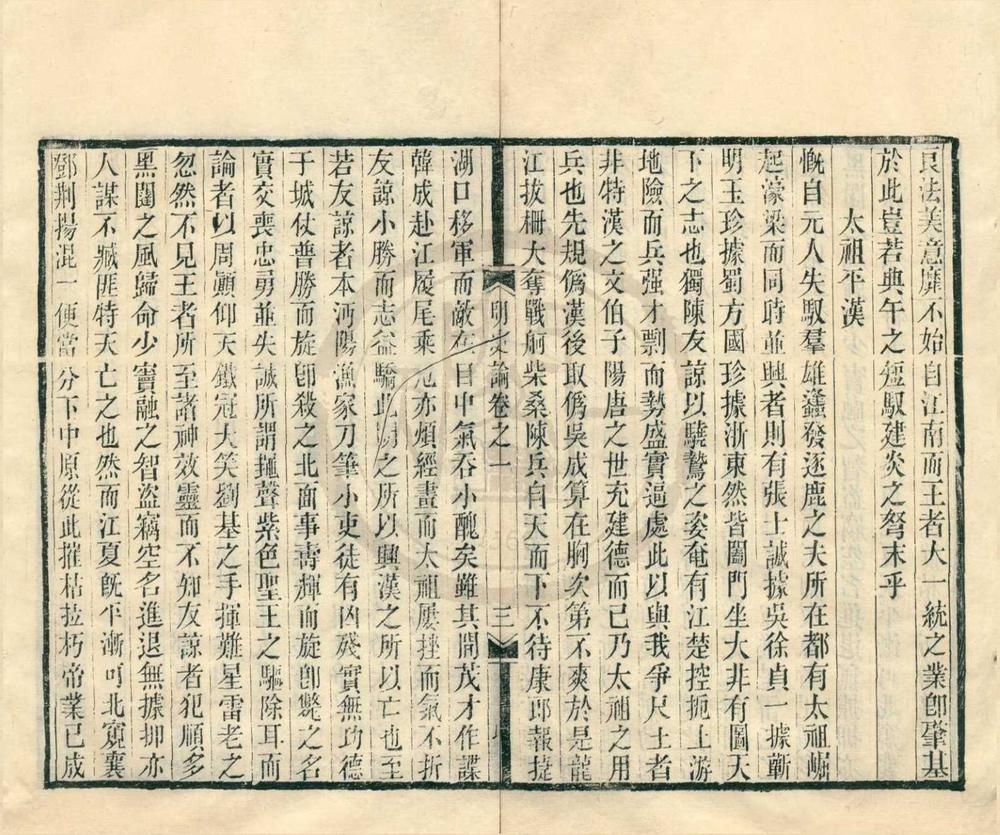 良法美意靡不始自江南而王者大一統之業卽肇基
於此豈若典午之短馭建炎之弩末乎
太祖平漢
慨自元人失馭羣雄蠭發逐鹿之夫所在都有太祖崛
起濠梁而同時並興者則有張士誠據吳徐貞一據蘄
明玉珍據蜀方國珍據浙東然皆闔門坐大非有圖天
下之志也獨陳友諒以驍鷙之姿奄有江楚控扼上游
地險而兵强才剽而勢盛實逼處此以與我爭尺土者
非特漢之文伯子陽唐之世充建德而已乃太祖之用
兵也先規僞漢後取僞吳成算在胸次第不爽於是龍
江拔柵大奪戰舸柴桑陳兵自天而下不待康郎報捷
明史論卷之一
三
湖口移軍而敵在目中氣吞小醜矣雖其間茂才作諜
韓成赴江履尾乘危亦煩經畫而太祖屢挫而氣不折
友諒小勝而志益驕此明之所以興漢之所以亡也至
若友諒者本沔陽漁家刀筆小吏徒有凶殘實無功德
于城仗普勝而旋卽殺之北面事壽輝而旋卽斃之名
實交喪忠勇並失誠所謂掩聲紫色聖王之驅除耳而
論者以周顛仰天鐵冠大笑劉基之手揮難星雷老之
忽然不見王者所至諸神效靈而不知友諒者犯順多
黑闥之風歸命少竇融之智盜竊空名進退無據抑亦
人謀不臧匪特天亡之也然而江夏旣平漸可北窺襄
鄧荆揚混一便當分下中原從此摧枯拉朽帝業已成